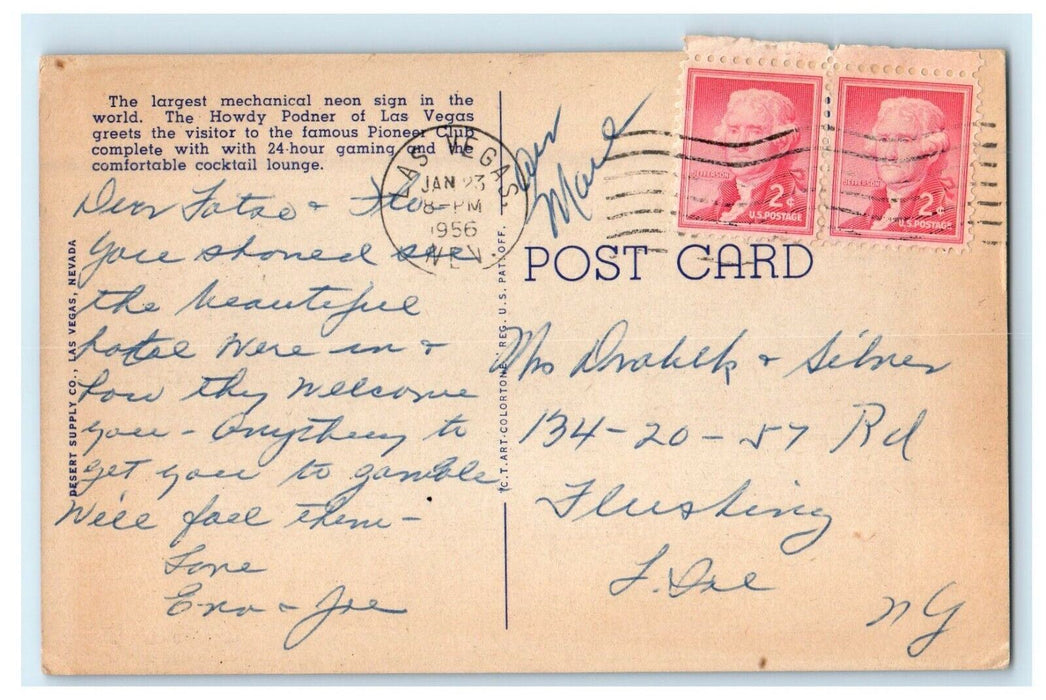 The largest mechanical neon sign in the
world. The Howdy Podner of Las Vegas
greets the visitor to the famous Pioneer Club
complete with with 24-hour gaming and the
comfortable cocktail lounge.
Dear &
You shoned see
the beautiful
hotel were in &
how they wellcome
you - Anything to
get you to gamble
We'll fool them -
Love
& Joe
DESERT SUPPLY CO., LAS VEGAS, NEVADA
"C.T. ART-COLORTONE" REG. U.S. PAT. OFF.
LAS VEGAS,
JAN 23
8-PM
1956
NEV.
JEFFERSON
2¢
U.S. POSTAGE
JEFFERSON
2¢
U.S. POSTAGE
POST CARD
Mrs &
134-20-57 Rd
Flushing
L. Isle
NY